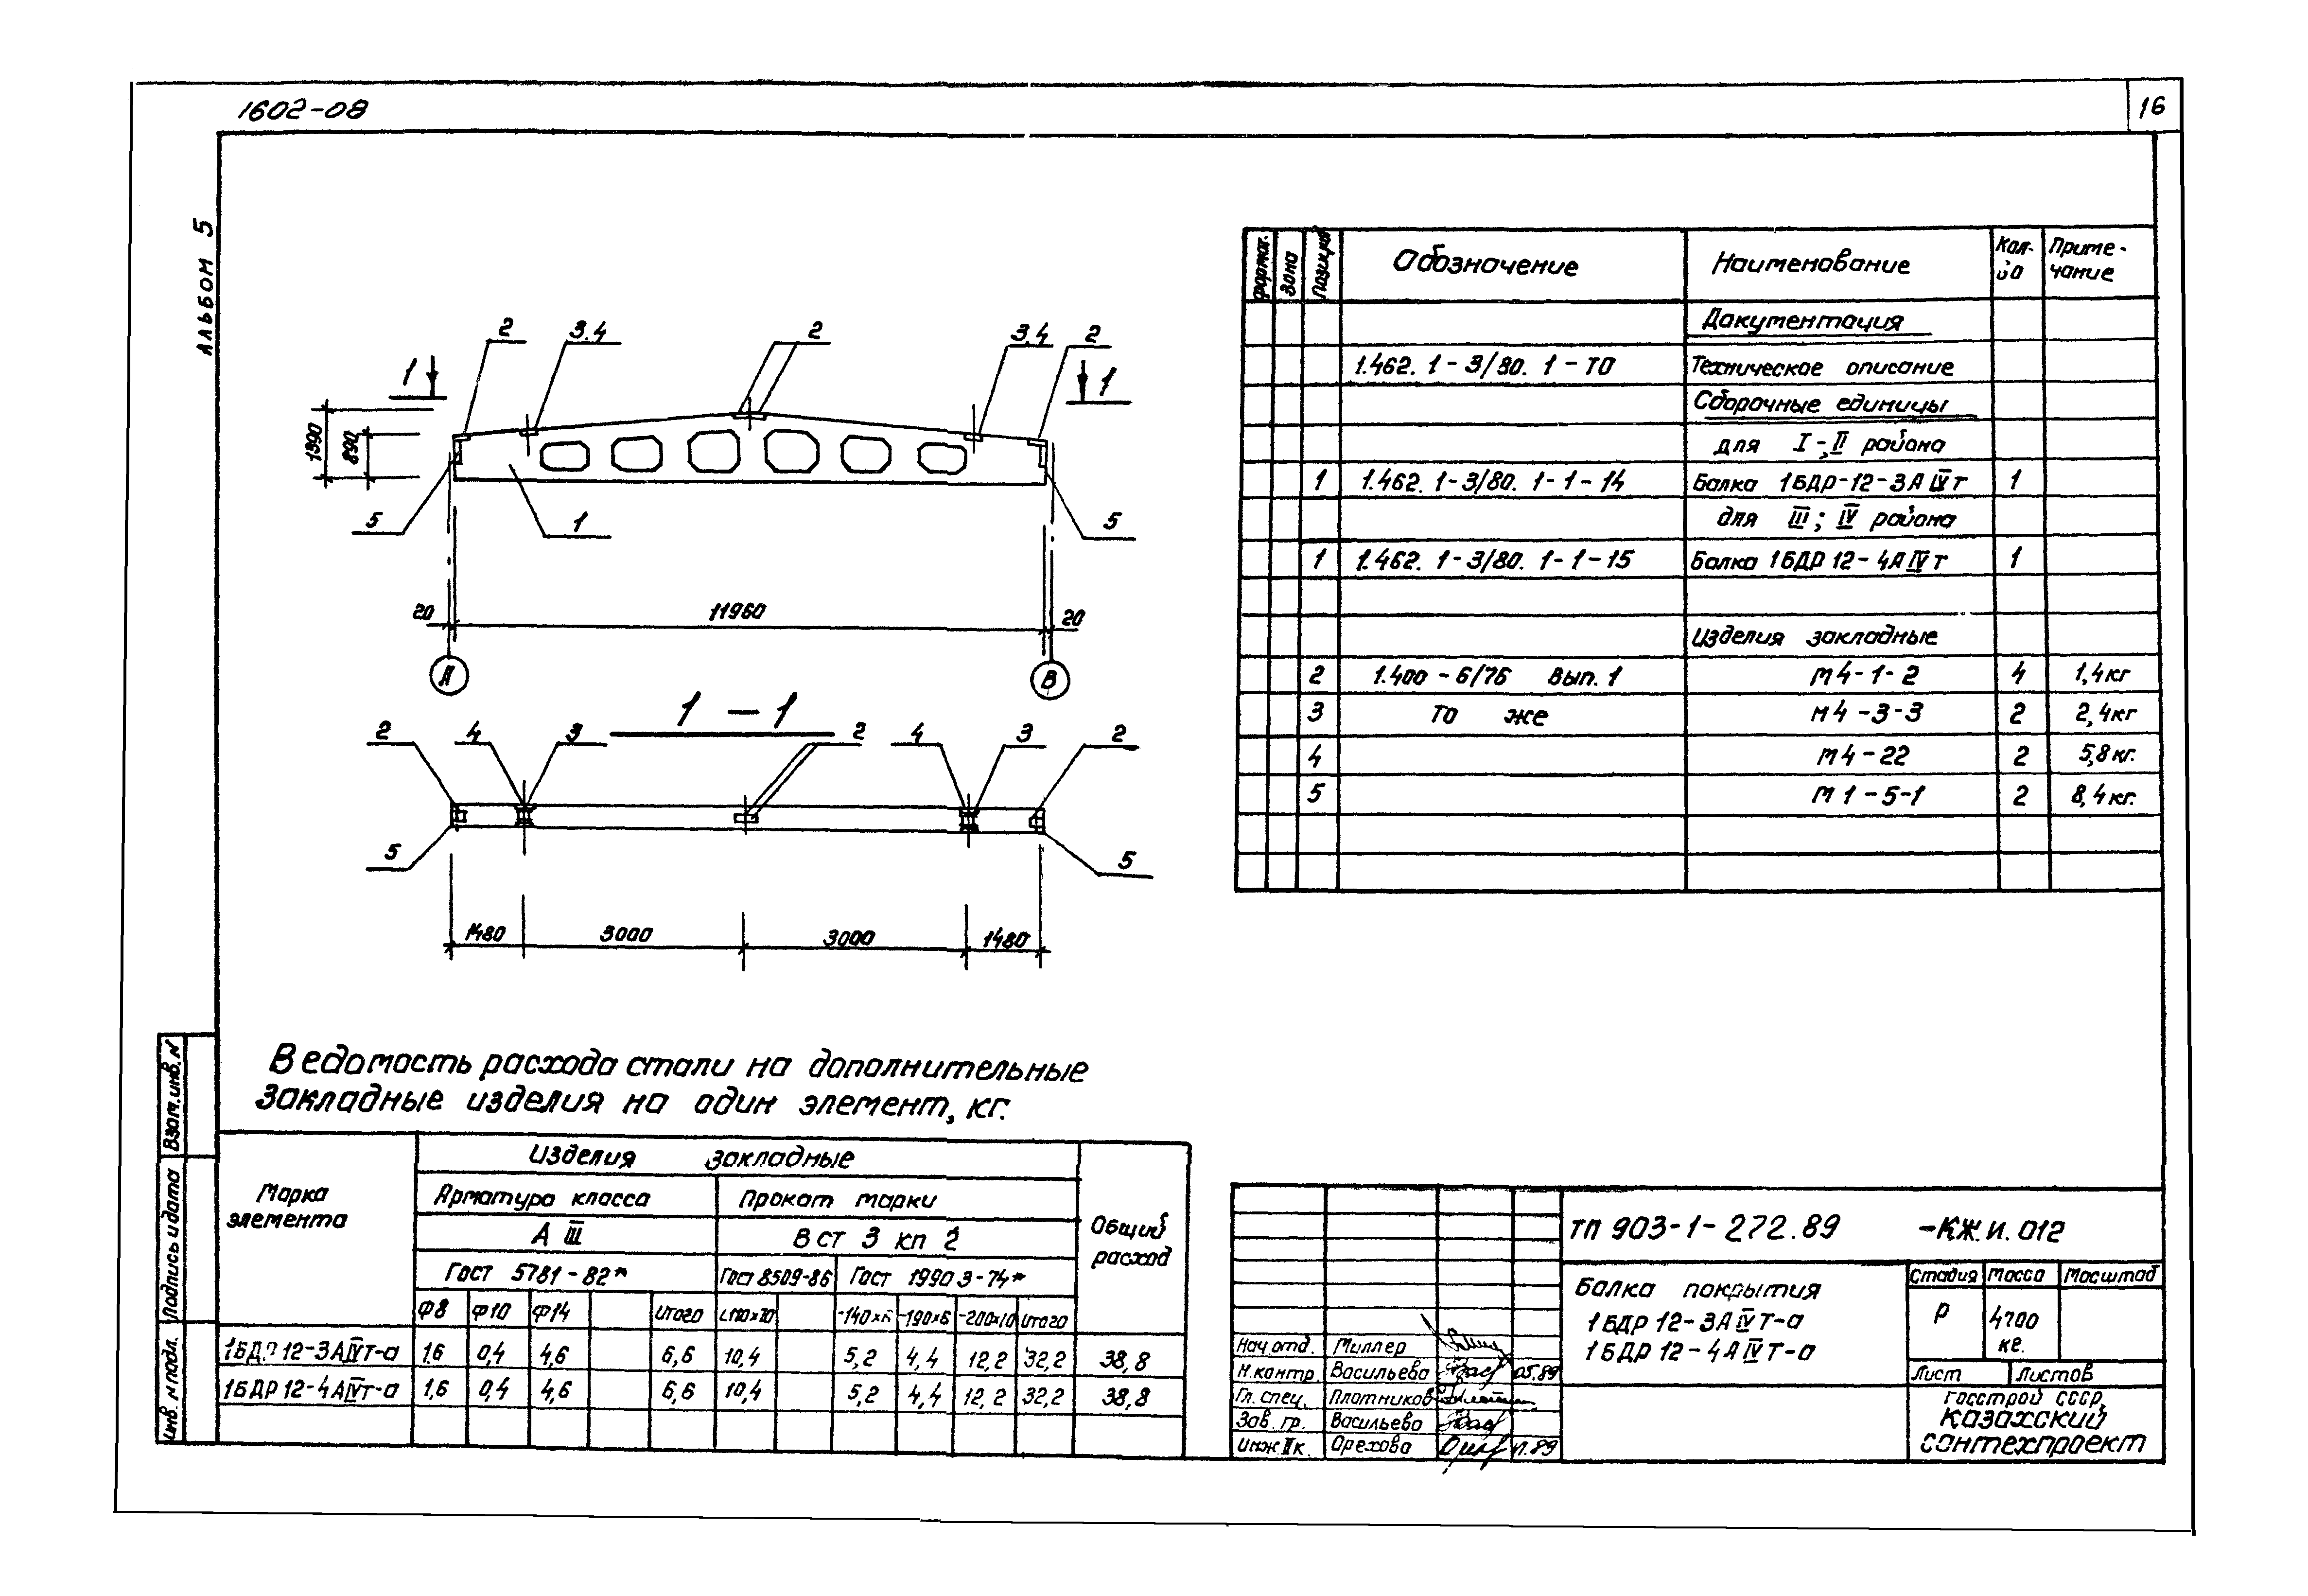 1602-08
16
Альбом 5
2 3.4 2 3.4 2
1 1
1390 890
5 1 5
20 11960 20
А В
1 - 1
2 4 3 2 4 3 2
5 5
1480 3000 3000 1480
Формат. Зона Позиция Обозначение Наименование Кол-во Приме-чание
Документация
1.462. 1-3/80. 1-ТО Техническое описание
Сборочные единицы
для I-II района
1 1.462. 1-3/80. 1-1-14 Балка 1БДР-12-3АIVт 1
для III; IV района
1 1.462. 1-3/80. 1-1-15 Балка 1БДР 12-4АIVт 1
Изделия закладные
2 1.400-6/76 Вып. 1 М4-1-2 4 1,4кг
3 То же М4-3-3 2 2,4кг
4 М4-22 2 5,8кг.
5 М1-5-1 2 8,4кг.
Ведомость расхода стали на дополнительные
закладные изделия на один элемент, кг.
Марка элемента Изделия закладные Общий расход
Арматура класса Прокат марки
А III В ст 3 кп 2
Гост 5781-82* Гост 8509-86 Гост 19903-74*
Ф8 Ф10 Ф14 итого L110х70 -140х6 -190х6 -200х10 итого
1БДР 12-3АIVт-а 1,6 0,4 4,6 6,6 10,4 5,2 4,4 12,2 32,2 38,8
1БДР 12-4АIVт-а 1,6 0,4 4,6 6,6 10,4 5,2 4,4 12,2 32,2 38,8
Взам.инв.N
Подпись и дата
Инв. N подл.
ТП 903-1-272.89 -КЖ.И.012
Балка покрытия
1БДР 12-3АIVт-а
1БДР 12-4АIVт-а
Стадия Масса Масштаб
Р 4700 кг.
Лист Листов
Госстрой СССР,
Казахский
сантехпроект
Нач.отд. Миллер
Н.контр. Васильева 05.89
Гл. спец. Плотников
Зав. гр. Васильева
Инж.IIк. Орехова